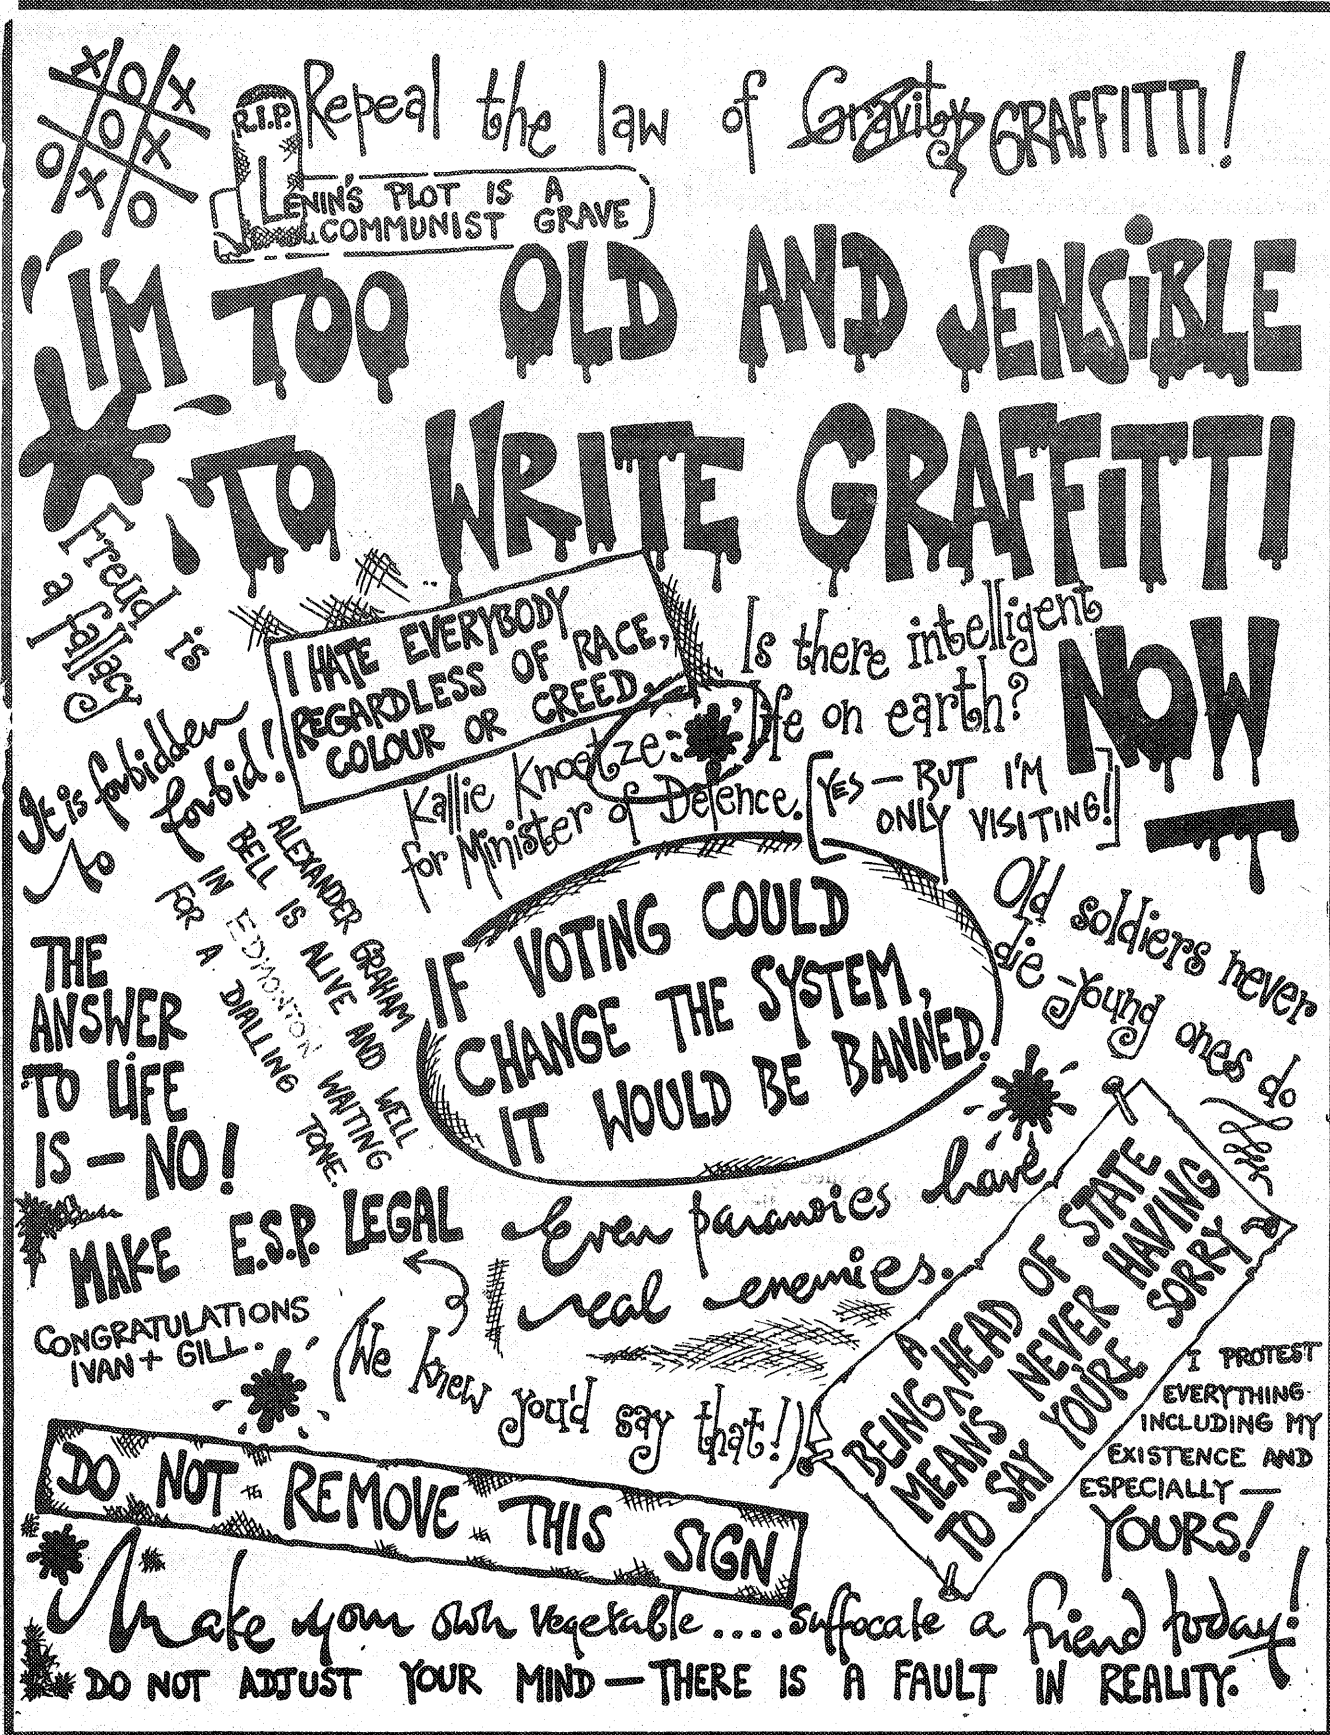 X O X
O X
O X O
R.I.P.
Repeal the law of Gravity GRAFFITTI!
LENIN'S PLOT IS A
COMMUNIST GRAVE
I'M TOO OLD AND SENSIBLE
TO WRITE GRAFFITTI
NOW
Freud is
a fallacy
I HATE EVERYBODY
REGARDLESS OF RACE,
COLOUR OR CREED.
Is there intelligent
life on earth?
[YES — BUT I'M
ONLY VISITING!]
It is forbidden
to forbid!
Kallie Knoetze
for Minister of Defence.
ALEXANDER GRAHAM
BELL IS ALIVE AND WELL
IN EDMONTON WAITING
FOR A DIALLING TONE.
IF VOTING COULD
CHANGE THE SYSTEM,
IT WOULD BE BANNED.
Old soldiers never
die - young ones do
THE
ANSWER
TO LIFE
IS — NO!
MAKE E.S.P. LEGAL
(We knew you'd say that!)
Even paranoics have
real enemies.
CONGRATULATIONS
IVAN + GILL.
BEING A HEAD OF STATE
MEANS NEVER HAVING
TO SAY YOU'RE SORRY
I PROTEST
EVERYTHING
INCLUDING MY
EXISTENCE AND
ESPECIALLY —
YOURS!
DO NOT REMOVE THIS SIGN
Make your own vegetable .... suffocate a friend today!
DO NOT ADJUST YOUR MIND — THERE IS A FAULT IN REALITY.